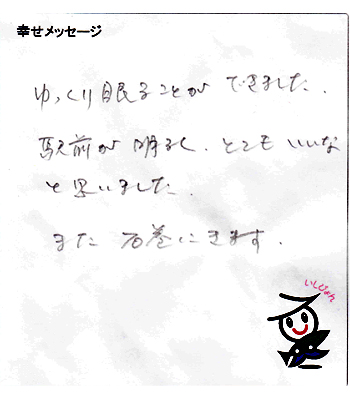 幸せメッセージ
ゆっくり眠ることができました.
駅前が明るく、とてもいいな
と思いました.
また石巻にきます.
いしぴょん